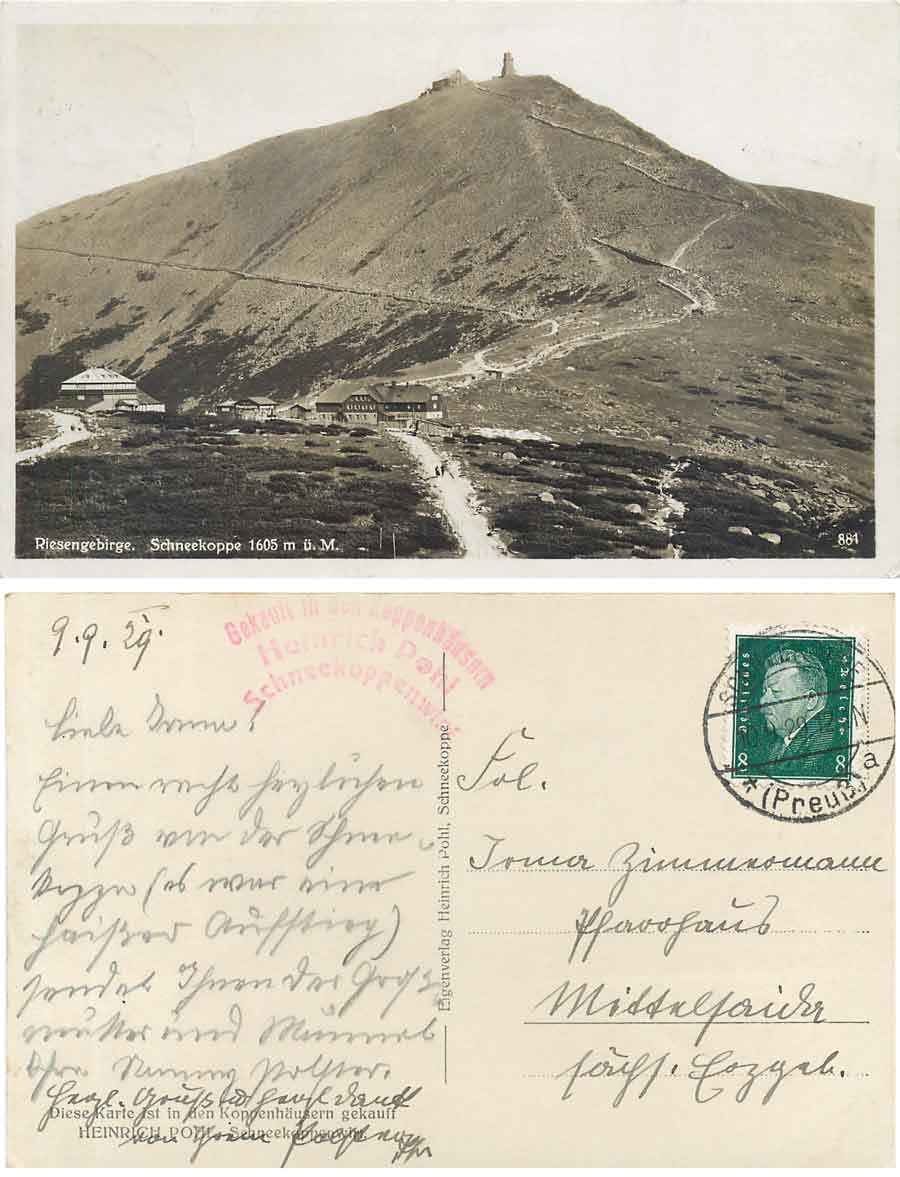 Riesengebirge. Schneekoppe 1605 m ü. M.
881
9.9.29.
Gekauft in den Koppenhäusern
Heinrich Pohl
Schneekoppenwirt
Liebe Irma!
Einen recht herzlichen
Gruß von der Schnee-
koppe (es war eine
heißer Aufstieg)
sendet Ihnen der Groß
mutter und
Ihre Polster.
Herzl. Gruß
von Ihrem
Diese Karte ist in den Koppenhäusern gekauft
HEINRICH POHL, Schneekoppenwirt
Eigenverlag Heinrich Pohl, Schneekoppe
Deutsches Reich
8 8
29
a
(Preuß.)
Frl.
Irma Zimmermann
Pfarrhaus
Mittelsaida
sächs. Erzgeb.